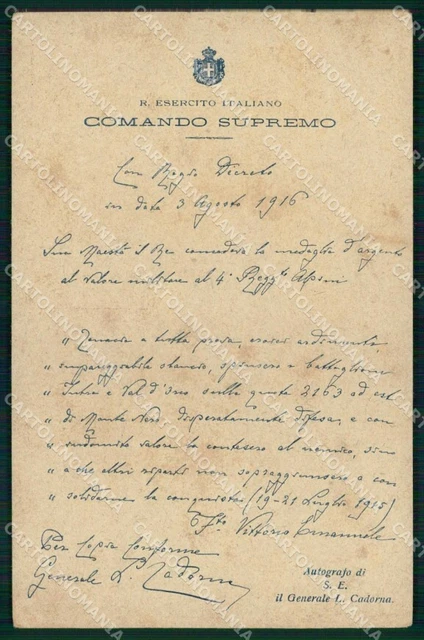 R. ESERCITO ITALIANO
COMANDO SUPREMO
Con Regio Decreto
in data 3 Agosto 1916
Sua Maestà il Re concedeva la medaglia d'argento
al valore militare al 4° Reggto Alpini
" Tenaci a tutta prova,
" impareggiabile slancio, i battaglioni
" Intra e Val d'Orco sulla quota 2163 ad est
" di Monte Nero, disperatamente difesa, e con
" indomito valore la contesero al nemico, sino
" a che altri riparti non sopraggiunsero a con
" solidarne la conquista (19-21 Luglio 1915)
Fto Vittorio Emanuele
Per Copia Conforme
Generale L. Cadorna
Autografo di
S. E.
il Generale L. Cadorna.
CARTOLINOMANIA